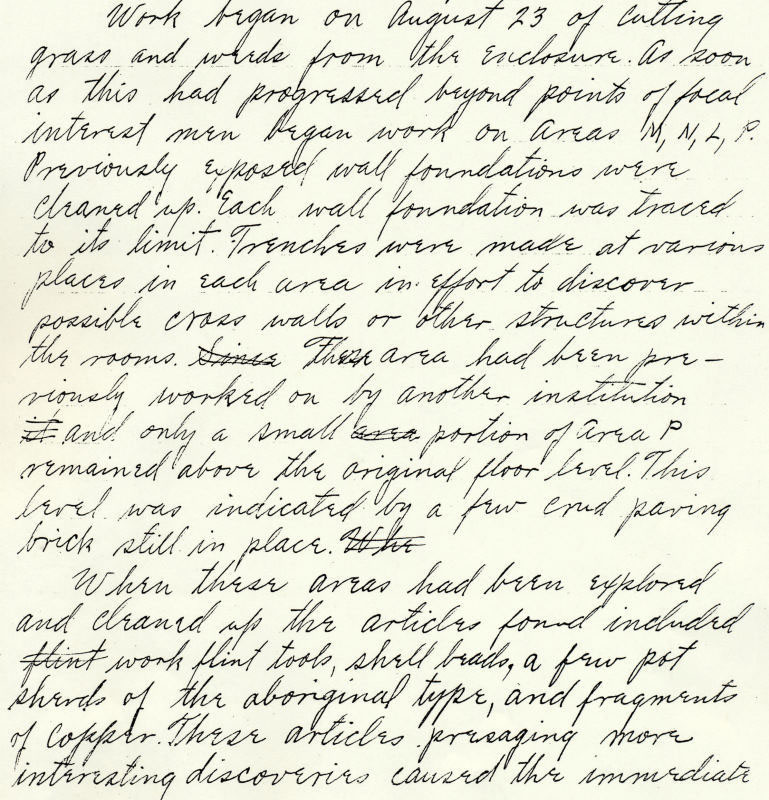 Work began on August 23 of cutting
grass and weeds from the enclosure. As soon
as this had progressed beyond points of focal
interest men began work on areas M, N, L, P.
Previously exposed wall foundations were
cleaned up. Each wall foundation was traced
to its limit. Trenches were made at various
places in each area in effort to discover
possible cross walls or other structures within
the rooms. Since These area had been pre-
viously worked on by another institution
it and only a small area portion of area P
remained above the original floor level. This
level was indicated by a few crud paving
brick still in place. Whe
When these areas had been explored
and cleaned up the articles found included
flint work flint tools, shell beads, a few pot
sherds of the aboriginal type, and fragments
of copper. These articles presaging more
interesting discoveries caused the immediate